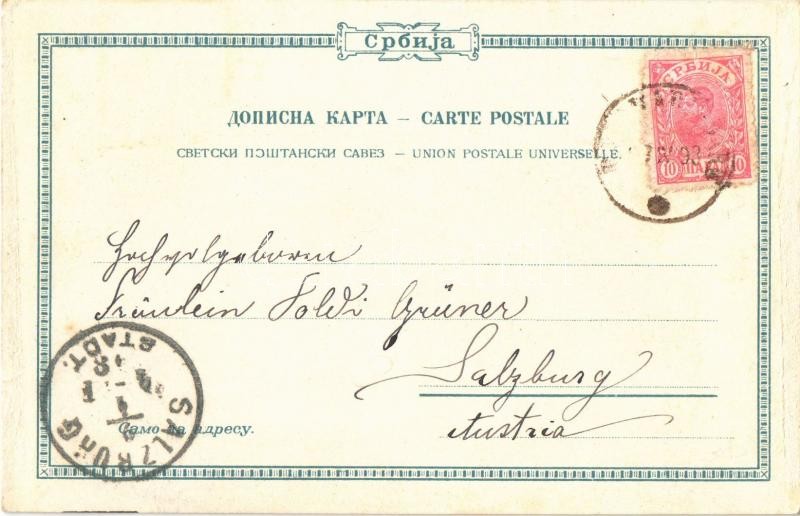 Србија
СРБИЈА
10 ПАРА 10
ДОПИСНА КАРТА – CARTE POSTALE
СВЕТСКИ ПОШТАНСКИ САВЕЗ – UNION POSTALE UNIVERSELLE.
Hochwolgeboren
Fräulein Poldi Grüner
Salzburg
Austria
Само за адресу.
SALZBURG
STADT.